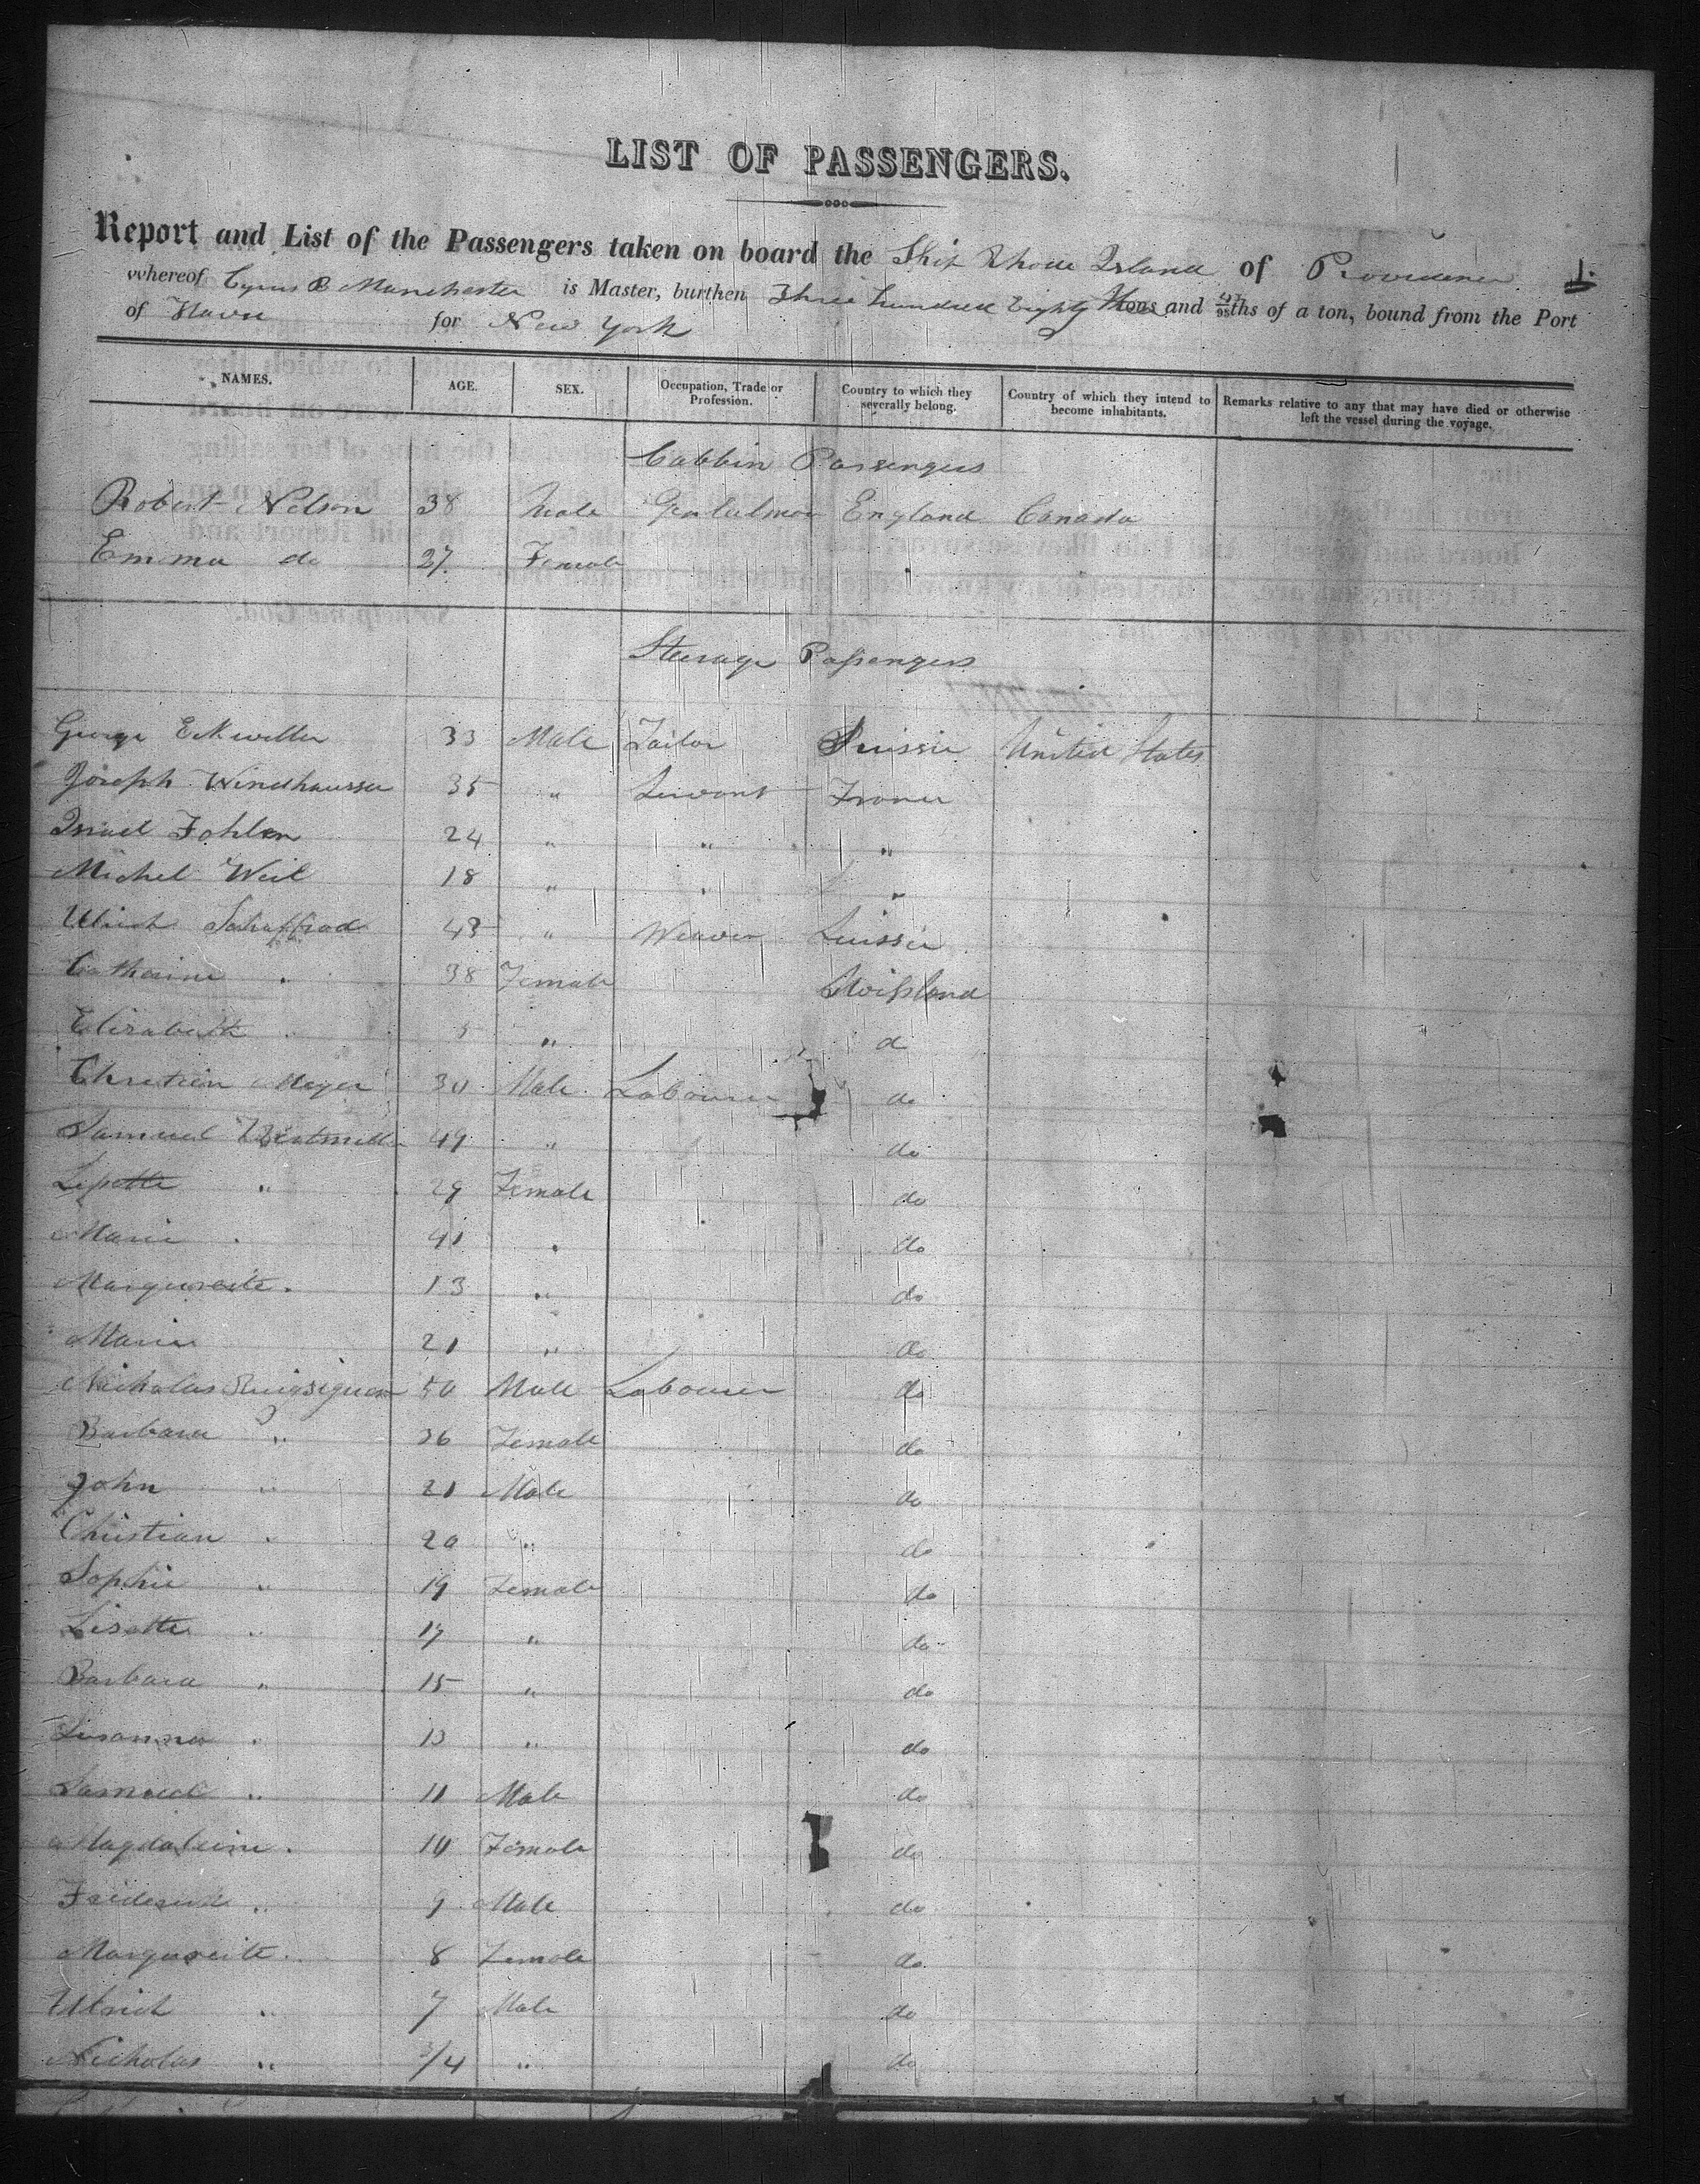 LIST OF PASSENGERS.
Report and List of the Passengers taken on board the Ship Rhode Island of Providence 1.
whereof Cyrus B Manchester is Master, burthen Three hundred Eighty tons and ths of a ton, bound from the Port
of Havre for New York
NAMES. AGE. SEX. Occupation, Trade or Profession. Country to which they severally belong. Country of which they intend to become inhabitants. Remarks relative to any that may have died or otherwise left the vessel during the voyage.
Cabbin Passengers
Robert Nelson 38 Male Gentelman England Canada
Emma do 27 Female
Steerage Passengers
George Eckwiller 33 Male Tailor United States
Joseph Windhausser 35 " Servant France
Israel Fohlen 24 " " "
Michel Weil 18 " " "
Ulrich 43 " Weaver Suisse
Catherine " 38 Female
Elizabeth " 5 " d
Chretien Meyer 30 Male Labourer do
Samuel 49 " do
Lisette " 29 Female do
Marie " 41 " do
Marguereite " 13 " do
Marie 21 " do
Nicholas 50 Male Labourer do
Barbara " 36 Female do
John " 21 Male do
Christian " 20 " do
Sophie " 19 Female do
Lisette " 17 " do
Barbara " 15 " do
Susanna " 13 " do
Samuel " 11 Male do
Magdaleine " 10 Female do
Frederick " 9 Male do
Marguereite " 8 Female do
Ulrich " 7 Male do
Nicholas " 3/4 " do